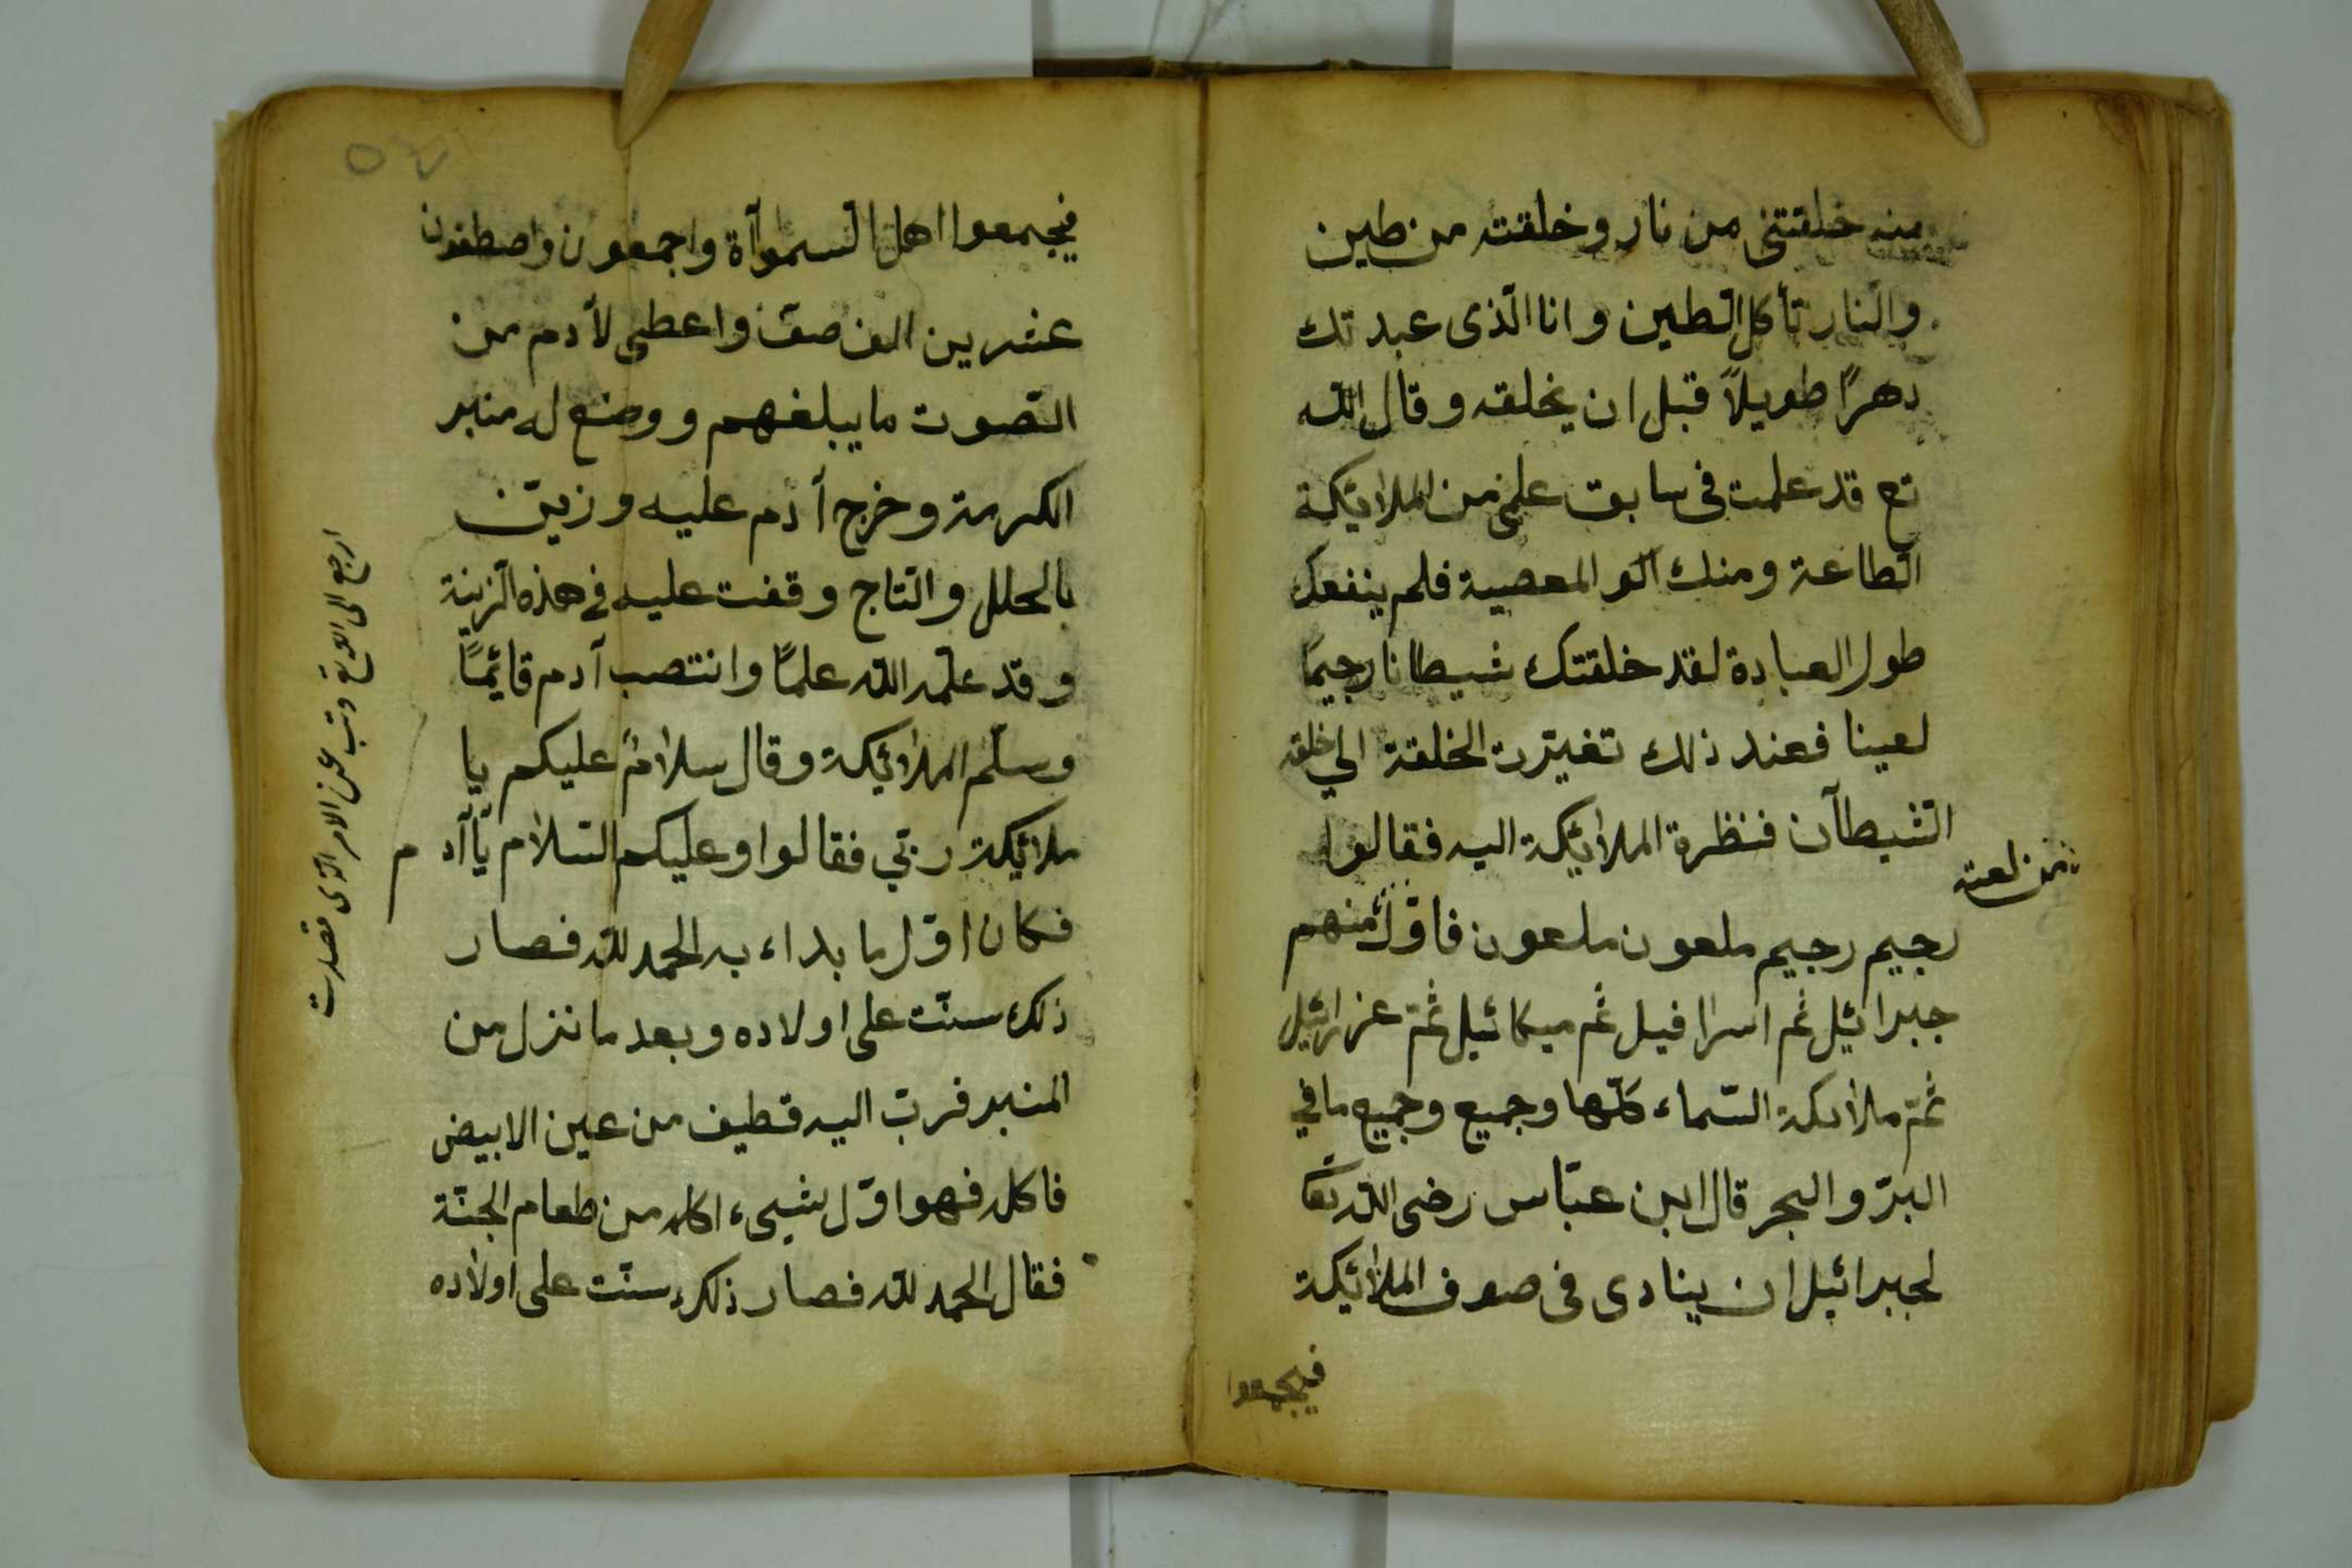 منه خلقتنى من نار وخلقته من طين
والنار تأكل الطين وانا الّذى عبدتك
دهرًا طويلاً قبل ان يخلقه وقال الله
تع قد علمت فى سابق علمى من الملائيكة
الطاعة ومنك الو المعصية فلم ينفعك
طول العبادة لقد خلقتك شيطانا رجيمًا
لعينا فعند ذلك تغيّرت الخلقة الي خلقه
الشيطآن فنظرة الملائيكة اليه فقالوا
رجيم رجيم ملعون ملعون فاوّل منهم
من لعنه
جبرائيل ثم اسرافيل ثم ميكائيل ثمّ عزرائيل
ثمّ ملائكة السّماء كلّها وجميع وجميع ما في
البرّ والبحر قال ابن عبّاس رضى الله تعا
لجبرائيل ان ينادى فى صوف الملائيكة
فيجمعوا
٥٤
فيجمعوا اهل السموآاة واجمعون واصطفون
عشرين الف صفّ واعطى لأدم من
الصّوت ما يبلغهم ووضع له منبر
الكرمة وخرج أدم عليه وزيّن
بالحلل والتّاج وقفت عليه فى هذه الزينة
وقد علّمه الله علمًا وانتصب آدم قائيمًا
وسلّم الملائيكة وقال سلامٌ عليكم يا
ملائيكة ربّي فقالوا وعليكم السّلام يآ آدم
فكان اوّل ما بداء به الحمد لله فصار
ذلك سنّت على اولاده وبعد ما نزل من
المنبر قربّ اليه قطيف من عين الابيض
فاكله فهو اوّل شيىء اكله من طعام الجنّة
فقال الحمد لله فصار ذلك سنّت على اولاده
ارجع الى الله وتب عن الامر الّذى قصدت